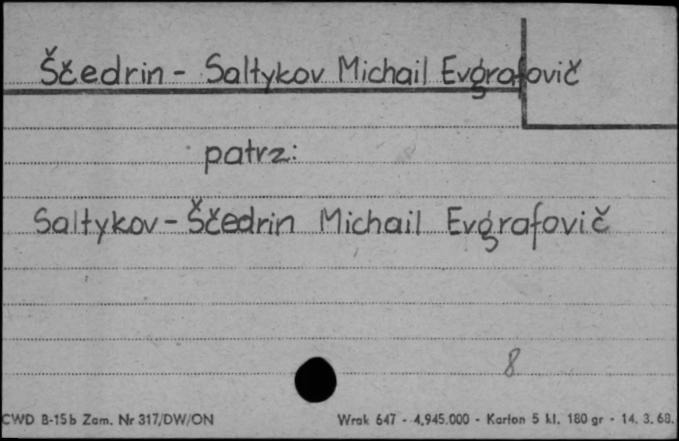 Ščedrin - Saltykov Michail Evgrafovič
patrz:
Saltykov - Ščedrin Michail Evgrafovič
8
CWD B-15b Zam. Nr 317/DW/ON Wrak 647 - 4.945.000 - Karton 5 kl. 180 gr - 14. 3. 68.